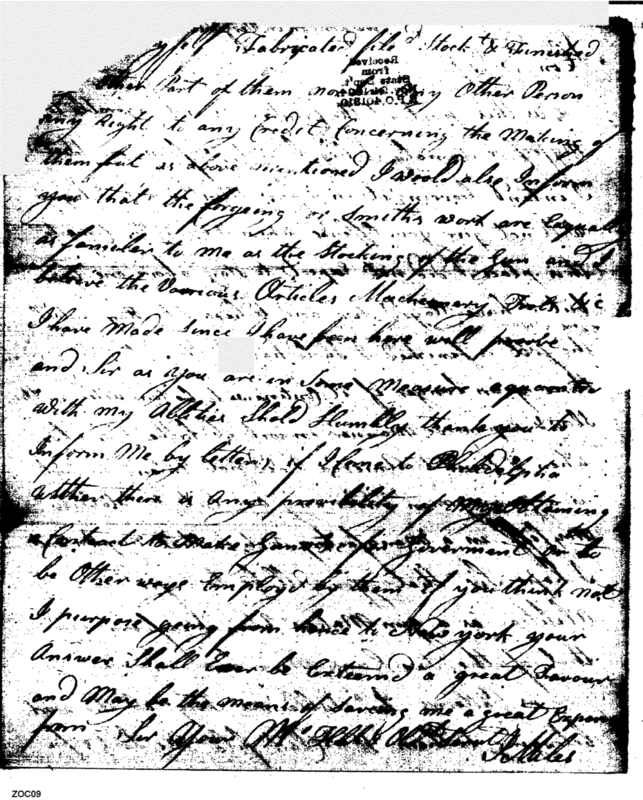 yself Fabricated file'd Stock't & Finished
other Part of them nor any Other Person
any Right to any Credit Concerning the Making of
them but as above mentioned I would also Inform
you that the forgeing or Smiths work are Equally
as familer to me as the Stocking of the Gun and I
believe the Various Articles Machenery Tools &c
I have Made Since I have been here will proove
and Sir as you are in Some Measure aquanted
with my Abilities Shold Humbly thank you to
Inform Me by letter, if I Come to Philadelphia
wither there is Any provibility of My Obtaining
a Contract to Make Guns for Goverment or to
be Other ways Employd by them if you think not
I purpose going from hence to New york your
Answer Shall Ever be Esteemd a great Favour
and May be the means of Saveing me a great Expence
from Sir Your Obt Servt
Jn Miles
Received
from
State Dep't.
ZOC09